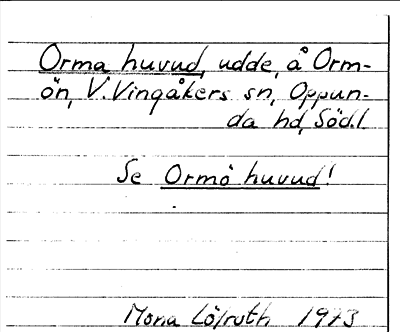 Orma huvud, udde, å Orm-
ön, V. Vingåkers sn, Oppun-
da hd, Södl.
Se Ormö huvud!
Mona Löfroth 1973